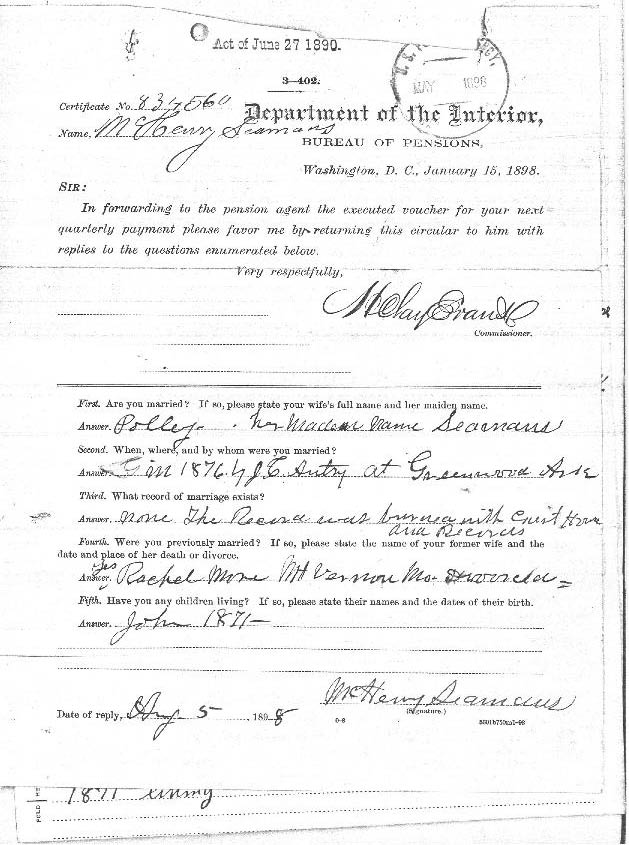 Act of June 27 1890.
3—402.
Certificate No. 837560
Department of the Interior,
Name, McHenry Seamans
BUREAU OF PENSIONS,
MAY 1898
Washington, D. C., January 15, 1898.
SIR:
In forwarding to the pension agent the executed voucher for your next
quarterly payment please favor me by returning this circular to him with
replies to the questions enumerated below.
Very respectfully,
H Clay Evans
Commissioner.
First. Are you married? If so, please state your wife's full name and her maiden name.
Answer. Polley. her Madean Name Seamans
Second. When, where, and by whom were you married?
Answer. in 1876 by J. C. Autry at Greenwood Ark
Third. What record of marriage exists?
Answer. none The Record was burned with Court House
and Records
Fourth. Were you previously married? If so, please state the name of your former wife and the
date and place of her death or divorce.
yes
Answer. Rachel More Mt Vernon Mo
Fifth. Have you any children living? If so, please state their names and the dates of their birth.
Answer. John 1871
McHenry Seamans
Date of reply, 5, 1898
(Signature.)
0-8
5301b750m1-98
1871